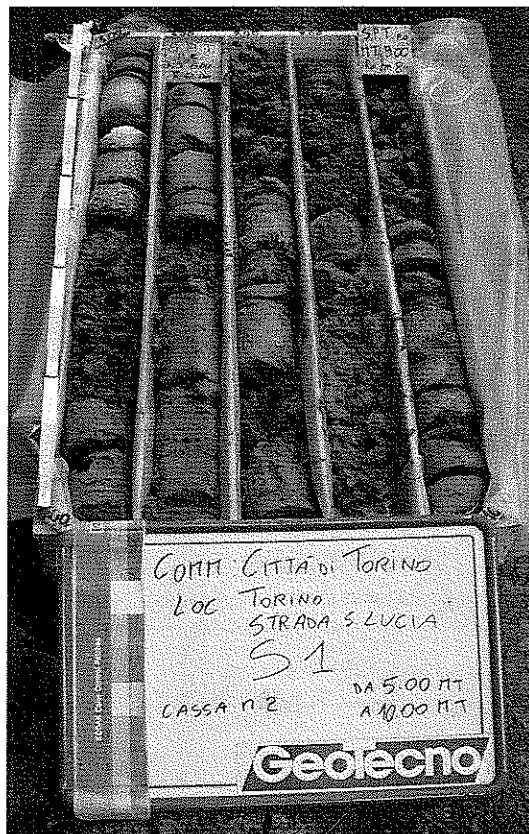 SPT
MT 9.00
COMM CITTÀ DI TORINO
LOC TORINO
STRADA S. LUCIA
S1
CASSA N 2
DA 5.00 MT
A 10.00 MT
Geotecno